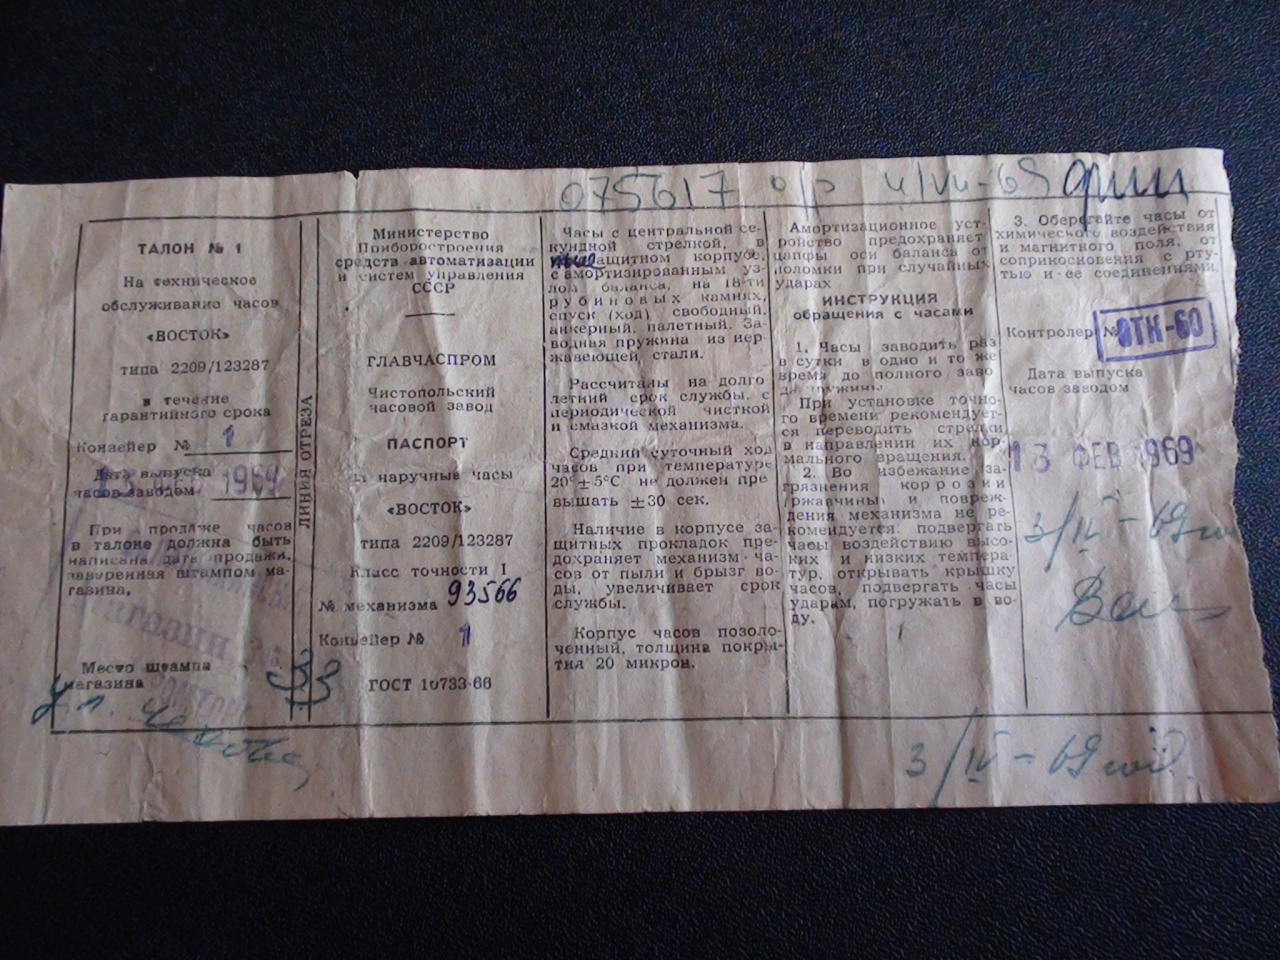 075617 о/р 4/VII-69
ТАЛОН № 1
На техническое
обслуживание часов
«ВОСТОК»
типа 2209/123287
в течение
гарантийного срока
Конвейер № 1
Дата выпуска
часов заводом
13 ФЕВ 1969
При продаже часов
в талоне должна быть
написана дата продажи,
заверенная штампом ма-
газина.
Место штампа
магазина
33
ЛИНИЯ ОТРЕЗА
Министерство
Приборостроения
средств автоматизации
и систем управления
СССР
ГЛАВЧАСПРОМ
Чистопольский
часовой завод
ПАСПОРТ
на наручные часы
«ВОСТОК»
типа 2209/123287
Класс точности I
№ механизма 93566
Конвейер № 1
ГОСТ 10733-66
Часы с центральной се-
кундной стрелкой, в
защитном корпусе,
с амортизированным уз-
лом баланса, на 18-ти
рубиновых камнях,
спуск (ход) свободный,
анкерный, палетный. За-
водная пружина из нер-
жавеющей, стали.
Рассчитаны на долго
летний срок службы, с
периодической чисткой
и смазкой механизма.
Средний суточный ход
часов при температуре
20°±5°С не должен пре
вышать ±30 сек.
Наличие в корпусе за-
щитных прокладок пре-
дохраняет механизм ча-
сов от пыли и брызг во-
ды, увеличивает срок
службы.
Корпус часов позоло-
ченный, толщина покры-
тия 20 микрон.
Амортизационное уст-
ройство предохраняет
цапфы оси баланса от
поломки при случайных
ударах
ИНСТРУКЦИЯ
обращения с часами
1. Часы заводить раз
в сутки в одно и то же
время до полного заво
да пружины.
При установке точно-
го времени рекомендует-
ся переводить стрелки
в направлении их нор-
мального вращения.
2. Во избежание за-
грязнения коррозии
(ржавчины) и повреж-
дения механизма не ре-
комендуется: подвергать
часы воздействию высо-
ких и низких темпера-
тур, открывать крышку
часов, подвергать часы
ударам, погружать в во-
ду.
3. Оберегайте часы от
химического воздействия
и магнитного поля, от
соприкосновения с рту-
тью и ее соединениями.
Контролер № ОТК-60
Дата выпуска
часов заводом
13 ФЕВ 1969
3/IV-69
3/IV-69